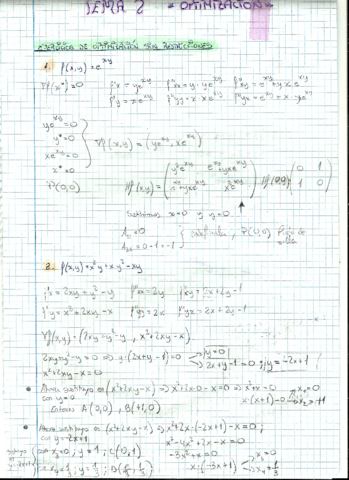 TEMA 2 - OPTIMIZACIÓN -
EJERCICIOS DE OPTIMIZACIÓN SIN RESTRICCIONES
1. f(x,y) = e^xy
∇f(x*)=0 f'x = ye^xy f''xx = y·ye^xy f''xy = e^xy + yxe^xy
f'y = xe^xy f''yy = x·xe^xy f''yx = e^xy + x·ye^xy
ye^xy = 0
y* = 0
xe^xy = 0
x* = 0
∇f(x,y) = (ye^xy, xe^xy)
P(0,0)
Hf(xy) = (y²e^xy e^xy+yxe^xy
e^xy+xye^xy x²e^xy) Hf(0,0) (0 1
1 0)
Sustituimos x=0 y y=0
A₁=0
A₂=0-1=-1
P(0,0) Punto de silla
2. f(x,y) = x²y + xy² - xy
f'x = 2xy + y² - y f''xx = 2y f''xy = 2x + 2y - 1
f'y = x² + 2xy - x f''yy = 2x f''yx = 2x + 2y - 1
∇f(x,y) = (2xy + y² - y, x² + 2xy - x)
2xy + y² - y = 0 ⇒ y·(2x + y - 1) = 0 y=0
2x + y - 1 = 0 ; y = -2x + 1
x² + 2xy - x = 0
• Ahora sustituyo en (x² + 2xy - x) ⇒ x² + 2x·0 - x = 0 ⇒ x² - x = 0
con y=0 x·(x-1) = 0 x₁=0
x₂=1
Entonces A(0,0), B(1,0)
• Ahora sustituyo en (x² + 2xy - x) ⇒ x² + 2x·(-2x+1) - x = 0 ;
con y = -2x+1 x² - 4x² + 2x - x = 0
-3x² + x = 0
x·(-3x+1) x₃=0
x₄=1/3
con x₃=0 ; y=1 ; C(0,1)
x₄=1/3 ; y=1/3 ; D(1/3, 1/3)